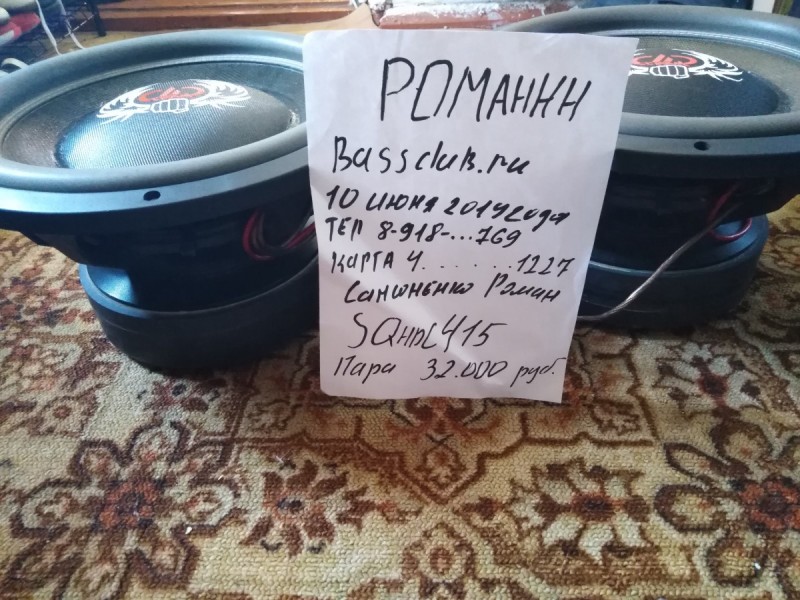 РОМАНКН
Bassclub.ru
10 июня 2019 года
ТЕЛ 8-918-...769
КАРТА 4.......1227
Роман
Пара 32.000 руб.